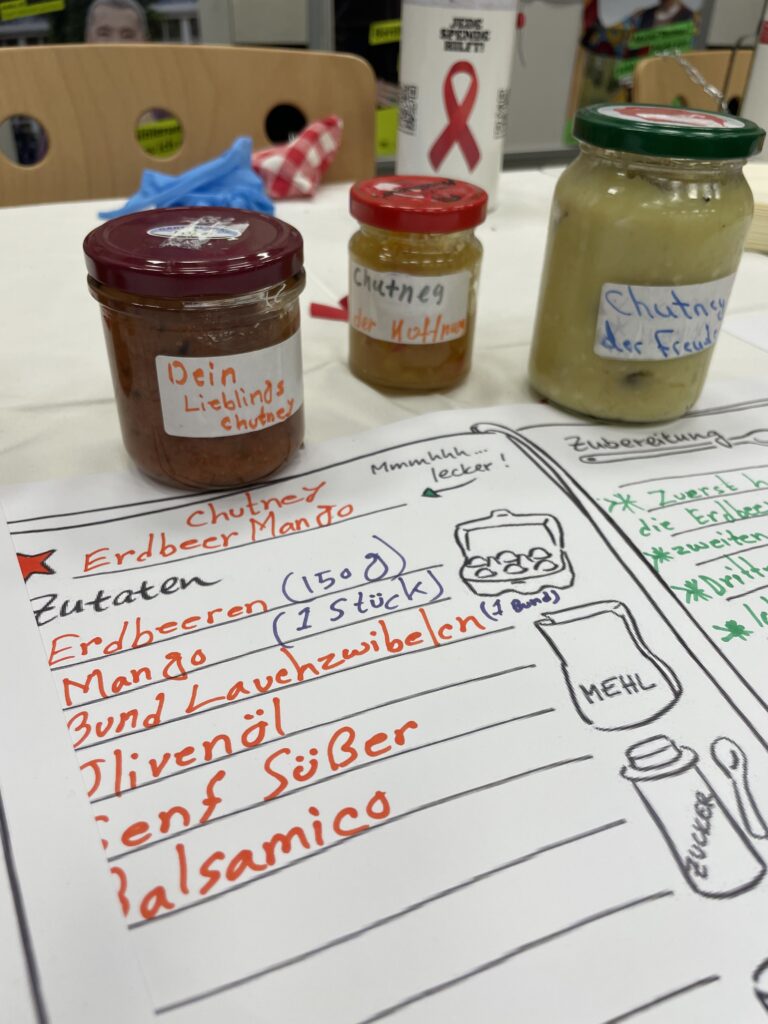 JEDE
SPENDE
HILFT!
Dein
Lieblings
chutney
Chutney
der Hoffnun
Chutney
der Freude
Mmmhhh...
lecker!
Chutney
Erdbeer Mango
Zutaten
Erdbeeren (150g)
Mango (1 Stück)
Bund Lauchzwibelen (1 Bund)
Olivenöl
Senf Süßer
Balsamico
MEHL
ZUCKER
Zubereitung
Zuerst
die Erdbee
zweiten
Dritt